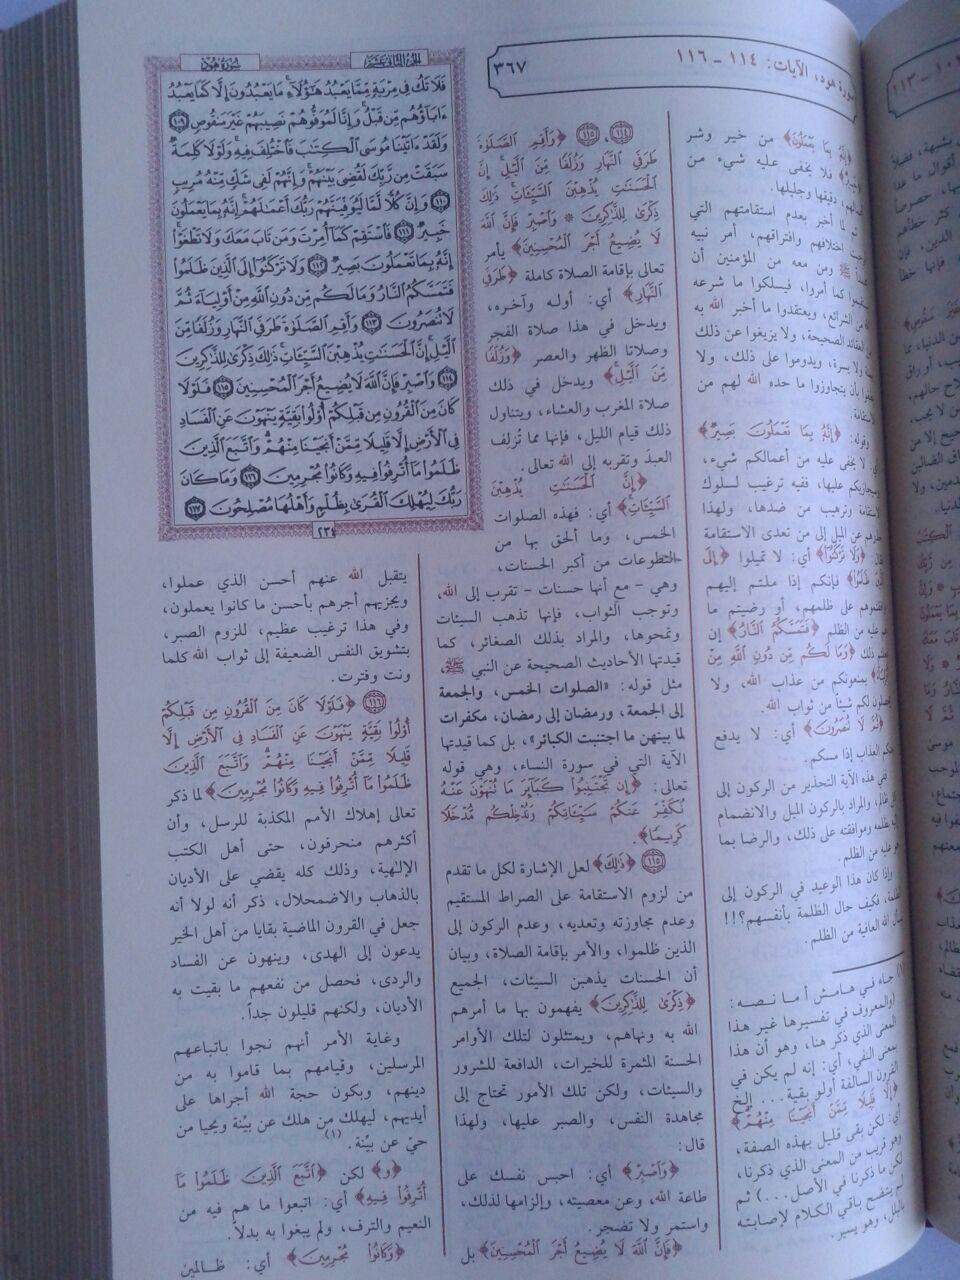 سورة هود، الآيات: ١١٤ - ١١٦
٣٦٧
الجزء الثاني عشر
سورة هود
فَلَا تَكُ فِي مِرْيَةٍ مِّمَّا يَعْبُدُ هَٰؤُلَاءِ مَا يَعْبُدُونَ إِلَّا كَمَا يَعْبُدُ
ءَابَاؤُهُم مِّن قَبْلُ وَإِنَّا لَمُوَفُّوهُمْ نَصِيبَهُمْ غَيْرَ مَنقُوصٍ ١٠٩
وَلَقَدْ ءَاتَيْنَا مُوسَى ٱلْكِتَٰبَ فَٱخْتُلِفَ فِيهِ وَلَوْلَا كَلِمَةٌ
سَبَقَتْ مِن رَّبِّكَ لَقُضِيَ بَيْنَهُمْ وَإِنَّهُمْ لَفِي شَكٍّ مِّنْهُ مُرِيبٍ
١١٠ وَإِنَّ كُلًّا لَّمَّا لَيُوَفِّيَنَّهُمْ رَبُّكَ أَعْمَٰلَهُمْ إِنَّهُ بِمَا يَعْمَلُونَ
خَبِيرٌ ١١١ فَٱسْتَقِمْ كَمَا أُمِرْتَ وَمَن تَابَ مَعَكَ وَلَا تَطْغَوْا
إِنَّهُ بِمَا تَعْمَلُونَ بَصِيرٌ ١١٢ وَلَا تَرْكَنُوا إِلَى ٱلَّذِينَ ظَلَمُوا
فَتَمَسَّكُمُ ٱلنَّارُ وَمَا لَكُم مِّن دُونِ ٱللَّهِ مِنْ أَوْلِيَاءَ ثُمَّ
لَا تُنصَرُونَ ١١٣ وَأَقِمِ ٱلصَّلَوٰةَ طَرَفَيِ ٱلنَّهَارِ وَزُلَفًا مِّنَ
ٱلَّيْلِ إِنَّ ٱلْحَسَنَٰتِ يُذْهِبْنَ ٱلسَّيِّئَاتِ ذَٰلِكَ ذِكْرَىٰ لِلذَّٰكِرِينَ
١١٤ وَٱصْبِرْ فَإِنَّ ٱللَّهَ لَا يُضِيعُ أَجْرَ ٱلْمُحْسِنِينَ ١١٥ فَلَوْلَا
كَانَ مِنَ ٱلْقُرُونِ مِن قَبْلِكُمْ أُولُوا بَقِيَّةٍ يَنْهَوْنَ عَنِ ٱلْفَسَادِ
فِي ٱلْأَرْضِ إِلَّا قَلِيلًا مِّمَّنْ أَنجَيْنَا مِنْهُمْ وَٱتَّبَعَ ٱلَّذِينَ
ظَلَمُوا مَا أُتْرِفُوا فِيهِ وَكَانُوا مُجْرِمِينَ ١١٦ وَمَا كَانَ
رَبُّكَ لِيُهْلِكَ ٱلْقُرَىٰ بِظُلْمٍ وَأَهْلُهَا مُصْلِحُونَ ١١٧
٢٣٤
﴿إِنَّهُ بِمَا يَعْمَلُونَ﴾ من خير وشر
﴿خَبِيرٌ﴾ فلا يخفى عليه شيء من
أعمالهم، دقيقها وجليلها.
ثم لما أخبر بعدم استقامتهم التي
اختلافهم وافتراقهم، أمر نبيه
ﷺ ومن معه من المؤمنين أن
كما أمروا، فيسلكوا ما شرعه
من الشرائع، ويعتقدوا ما أخبر الله به
العقائد الصحيحة، ولا يزيغوا عن ذلك
ولا يسرة، ويدوموا على ذلك، ولا
بأن يتجاوزوا ما حده الله لهم من
الاستقامة.
وقوله: ﴿إِنَّهُ بِمَا تَعْمَلُونَ بَصِيرٌ﴾
لا يخفى عليه من أعمالكم شيء،
وسيجازيكم عليها، ففيه ترغيب لسلوك
الاستقامة وترهيب من ضدها، ولهذا
حذرهم عن الميل إلى من تعدى الاستقامة
فقال: ﴿وَلَا تَرْكَنُوا﴾ أي: لا تميلوا ﴿إِلَى
الَّذِينَ ظَلَمُوا﴾ فإنكم إذا ملتم إليهم
على ظلمهم، أو رضيتم ما
هم عليه من الظلم ﴿فَتَمَسَّكُمُ النَّارُ﴾ إن
ذلك ﴿وَمَا لَكُم مِّن دُونِ اللَّهِ مِنْ
أَوْلِيَاءَ﴾ يمنعونكم من عذاب الله، ولا
يحصلون لكم شيئًا من ثواب الله.
﴿ثُمَّ لَا تُنصَرُونَ﴾ أي: لا يدفع
عنكم العذاب إذا مسكم.
في هذه الآية التحذير من الركون إلى
كل ظالم، والمراد بالركون الميل والانضمام
إليه بظلمه وموافقته على ذلك، والرضا بما
هو عليه من الظلم.
وإذا كان هذا الوعيد في الركون إلى
الظلمة، فكيف حال الظلمة بأنفسهم؟!!
نسأل الله العافية من الظلم.
(١) جاء في هامش أ ما نصه:
(والمعروف في تفسيرها غير هذا
المعنى الذي ذكر هنا، وهو أن هذا
بمعنى النفي، أي: إنه لم يكن في
القرون السالفة أولو بقية... إلخ
﴿إِلَّا قَلِيلًا مِّمَّنْ أَنجَيْنَا مِنْهُمْ﴾
أي: لكن بقي قليل بهذه الصفة،
وهو قريب من المعنى الذي ذكرنا،
لكن ما ذكرنا في الأصل...) ثم
لم يتضح باقي الكلام لإصابته
بالبلل، وهو يسير.
١١٤، ١١٥ ﴿وَأَقِمِ الصَّلَوٰةَ
طَرَفَيِ النَّهَارِ وَزُلَفًا مِّنَ الَّيْلِ إِنَّ
الْحَسَنَٰتِ يُذْهِبْنَ السَّيِّئَاتِ ذَٰلِكَ
ذِكْرَىٰ لِلذَّٰكِرِينَ * وَاصْبِرْ فَإِنَّ اللَّهَ
لَا يُضِيعُ أَجْرَ الْمُحْسِنِينَ﴾ يأمر
تعالى بإقامة الصلاة كاملة ﴿طَرَفَيِ
النَّهَارِ﴾ أي: أوله وآخره،
ويدخل في هذا صلاة الفجر
وصلاتا الظهر والعصر ﴿وَزُلَفًا
مِّنَ الَّيْلِ﴾ ويدخل في ذلك
صلاة المغرب والعشاء، ويتناول
ذلك قيام الليل، فإنها مما تُزلف
العبدَ وتقربه إلى الله تعالى.
﴿إِنَّ الْحَسَنَٰتِ يُذْهِبْنَ
السَّيِّئَاتِ﴾ أي: فهذه الصلوات
الخمس، وما ألحق بها من
التطوعات من أكبر الحسنات،
وهي - مع أنها حسنات - تقرب إلى الله،
وتوجب الثواب، فإنها تذهب السيئات
وتمحوها، والمراد بذلك الصغائر، كما
قيدتها الأحاديث الصحيحة عن النبي ﷺ،
مثل قوله: «الصلوات الخمس، والجمعة
إلى الجمعة، ورمضان إلى رمضان، مكفرات
لما بينهن ما اجتنبت الكبائر»، بل كما قيدتها
الآية التي في سورة النساء، وهي قوله
تعالى: ﴿إِن تَجْتَنِبُوا كَبَائِرَ مَا تُنْهَوْنَ عَنْهُ
نُكَفِّرْ عَنكُمْ سَيِّئَاتِكُمْ وَنُدْخِلْكُم مُّدْخَلًا
كَرِيمًا﴾.
١١٥ ﴿ذَٰلِكَ﴾ لعل الإشارة لكل ما تقدم
من لزوم الاستقامة على الصراط المستقيم
وعدم مجاوزته وتعديه، وعدم الركون إلى
الذين ظلموا، والأمر بإقامة الصلاة، وبيان
أن الحسنات يذهبن السيئات، الجميع
﴿ذِكْرَىٰ لِلذَّٰكِرِينَ﴾ يفهمون بها ما أمرهم
الله به ونهاهم، ويمتثلون لتلك الأوامر
الحسنة المثمرة للخيرات، الدافعة للشرور
والسيئات، ولكن تلك الأمور تحتاج إلى
مجاهدة النفس، والصبر عليها، ولهذا
قال:
﴿وَاصْبِرْ﴾ أي: احبس نفسك على
طاعة الله، وعن معصيته، وإلزامها لذلك،
واستمر ولا تضجر.
﴿فَإِنَّ اللَّهَ لَا يُضِيعُ أَجْرَ الْمُحْسِنِينَ﴾ بل
يتقبل الله عنهم أحسن الذي عملوا،
ويجزيهم أجرهم بأحسن ما كانوا يعملون،
وفي هذا ترغيب عظيم، للزوم الصبر،
بتشويق النفس الضعيفة إلى ثواب الله كلما
ونت وفترت.
١١٦ ﴿فَلَوْلَا كَانَ مِنَ الْقُرُونِ مِن قَبْلِكُمْ
أُولُوا بَقِيَّةٍ يَنْهَوْنَ عَنِ الْفَسَادِ فِي الْأَرْضِ إِلَّا
قَلِيلًا مِّمَّنْ أَنجَيْنَا مِنْهُمْ وَاتَّبَعَ الَّذِينَ
ظَلَمُوا مَا أُتْرِفُوا فِيهِ وَكَانُوا مُجْرِمِينَ﴾ لما ذكر
تعالى إهلاك الأمم المكذبة للرسل، وأن
أكثرهم منحرفون، حتى أهل الكتب
الإلهية، وذلك كله يقضي على الأديان
بالذهاب والاضمحلال، ذكر أنه لولا أنه
جعل في القرون الماضية بقايا من أهل الخير
يدعون إلى الهدى، وينهون عن الفساد
والردى، فحصل من نفعهم ما بقيت به
الأديان، ولكنهم قليلون جداً.
وغاية الأمر أنهم نجوا باتباعهم
المرسلين، وقيامهم بما قاموا به من
دينهم، وبكون حجة الله أجراها على
أيديهم، ليهلك من هلك عن بيّنة ويحيا من
حيّ عن بيّنة.(١)
﴿و﴾ لكن ﴿اتَّبَعَ الَّذِينَ ظَلَمُوا مَا
أُتْرِفُوا فِيهِ﴾ أي: اتبعوا ما هم فيه من
النعيم والترف، ولم يبغوا به بدلاً.
﴿وَكَانُوا مُجْرِمِينَ﴾ أي: ظالمين